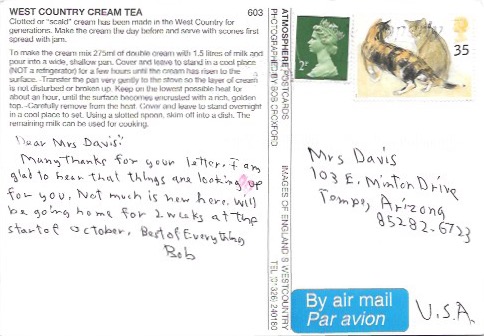 WEST COUNTRY CREAM TEA 603
Clotted or "scald" cream has been made in the West Country for
generations. Make the cream the day before and serve with scones first
spread with jam.
To make the cream mix 275ml of double cream with 1.5 litres of milk and
pour into a wide, shallow pan. Cover and leave to stand in a cool place
(NOT a refrigerator) for a few hours until the cream has risen to the
surface. -Transfer the pan very gently to the stove so the layer of cream
is not disturbed or broken up. Keep on the lowest possible heat for
about an hour, until the surface becomes encrusted with a rich, golden
top. -Carefully remove from the heat. Cover and leave to stand overnight
in a cool place to set. Using a slotted spoon, skim off into a dish. The
remaining milk can be used for cooking.
Dear Mrs Davis:
Many thanks for your letter. I am
glad to hear that things are looking up
for you. Not much is new here. Will
be going home for 2 weeks at the
start of October. Best of Everything
Bob
ATMOSPHERE POSTCARDS
PHOTOGRAPHED BY BOB CROXFORD
IMAGES OF ENGLAND'S WESTCOUNTRY
TEL. 01326 240180
2p
35
Mrs Davis
103 E. Minton Drive
Tempe, Arizona
85282-6723
By air mail
Par avion
U.S.A.